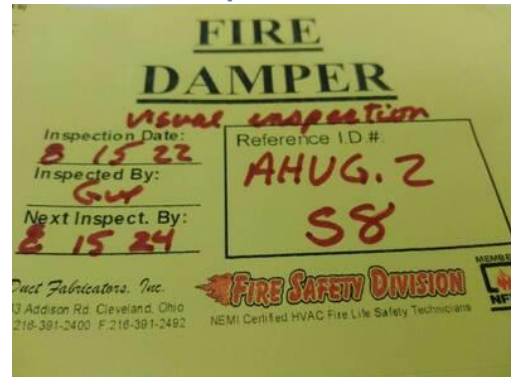 FIRE
DAMPER
visual inspection
Inspection Date:
8 15 22
Inspected By:
Next Inspect. By:
8 15 24
Reference I.D.#:
AHUG.2
S8
Duct Fabricators, Inc.
3 Addison Rd. Cleveland, Ohio
216-391-2400 F.216-391-2492
FIRE SAFETY DIVISION
NEMI Certified HVAC Fire Life Safety Technicians
MEMBE
NF